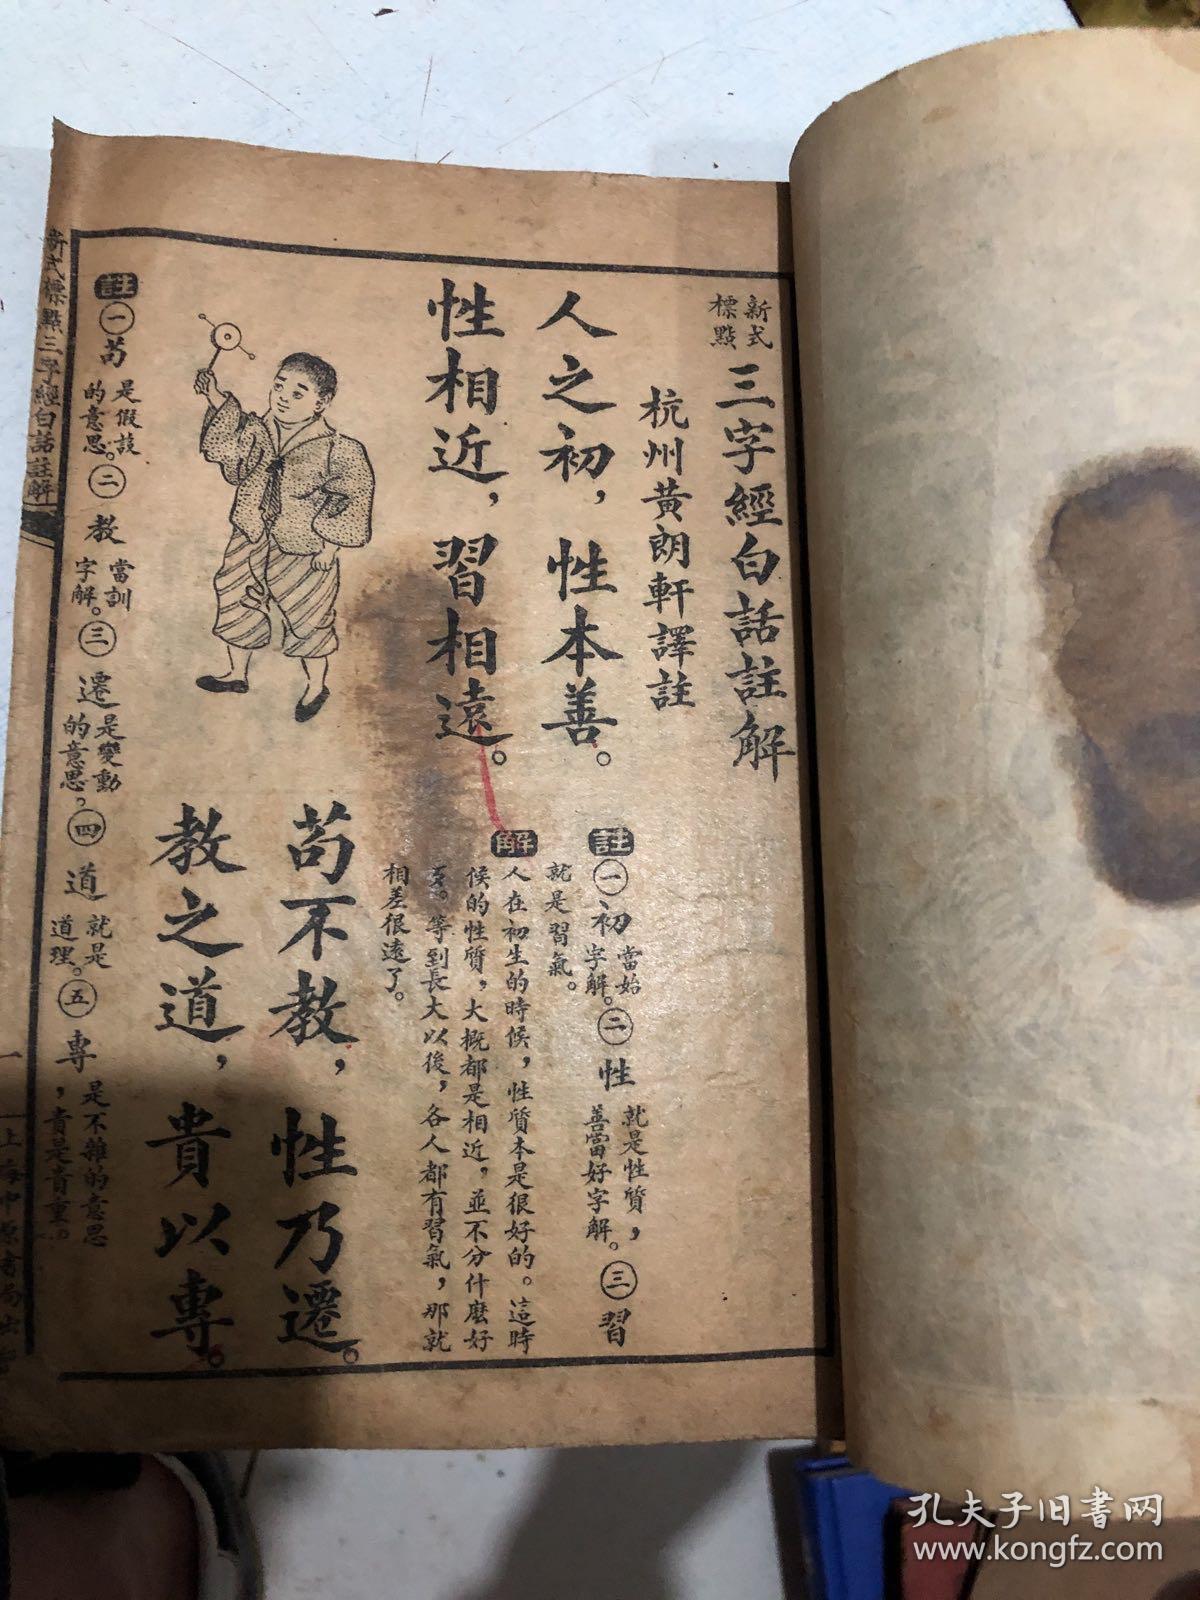 新式
標點
三字經白話註解
杭州黃朗軒譯註
人之初，性本善。
性相近，習相遠。
註㊀初當始字解。㊁性就是性質，善當好字解。㊂習
就是習氣。
解
人在初生的時候，性質本是很好的。這時
候的性質，大概都是相近，並不分什麼好
等到長大以後，各人都有習氣，那就
相差很遠了。
苟不教，性乃遷。
教之道，貴以專。
註㊀苟是假設的意思。㊁教當訓字解。㊂遷是變動的意思。㊃道就是道理。㊄專是不雜的意思，貴是貴重。
新式標點三字經白話註解
一
上海中原書局出
孔夫子旧书网
www.kongfz.com